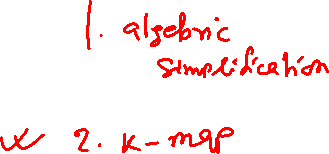 1. algebric
simplification
2. K-map